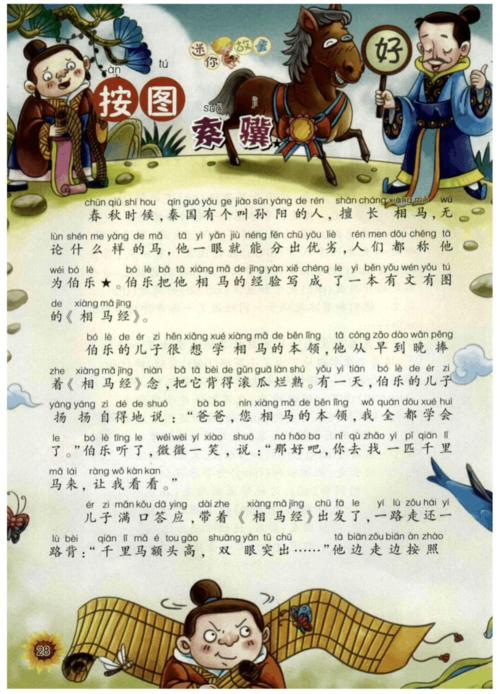 迷你故事
好
àn tú
按图
suǒ jì
索骥
chūn qiū shí hou qín guó yǒu ge jiào sūn yáng de rén shàn cháng xiàng mǎ wú
春秋时候，秦国有个叫孙阳的人，擅长相马，无
lùn shén me yàng de mǎ tā yì yǎn jiù néng fēn chū yōu liè rén men dōu chēng tā
论什么样的马，他一眼就能分出优劣，人们都称他
wéi bó lè bó lè bǎ tā xiàng mǎ de jīng yàn xiě chéng le yì běn yǒu wén yǒu tú
为伯乐★。伯乐把他相马的经验写成了一本有文有图
de xiàng mǎ jīng
的《相马经》。
bó lè de ér zi hěn xiǎng xué xiàng mǎ de běn lǐng tā cóng zǎo dào wǎn pěng
伯乐的儿子很想学相马的本领，他从早到晚捧
zhe xiàng mǎ jīng niàn bǎ tā bèi de gǔn guā làn shú yǒu yì tiān bó lè de ér zi
着《相马经》念，把它背得滚瓜烂熟。有一天，伯乐的儿子
yáng yáng zì dé de shuō bà ba nín xiàng mǎ de běn lǐng wǒ quán dōu xué huì
扬扬自得地说：“爸爸，您相马的本领，我全都学会
le bó lè tīng le wēi wēi yí xiào shuō nà hǎo ba nǐ qù zhǎo yì pǐ qiān lǐ
了。”伯乐听了，微微一笑，说：“那好吧，你去找一匹千里
mǎ lái ràng wǒ kàn kan
马来，让我看看。”
ér zi mǎn kǒu dā ying dài zhe xiàng mǎ jīng chū fā le yí lù zǒu hái yí
儿子满口答应，带着《相马经》出发了，一路走还一
lù bèi qiān lǐ mǎ é tou gāo shuāng yǎn tū chū tā biān zǒu biān àn zhào
路背：“千里马额头高，双眼突出……”他边走边按照
28